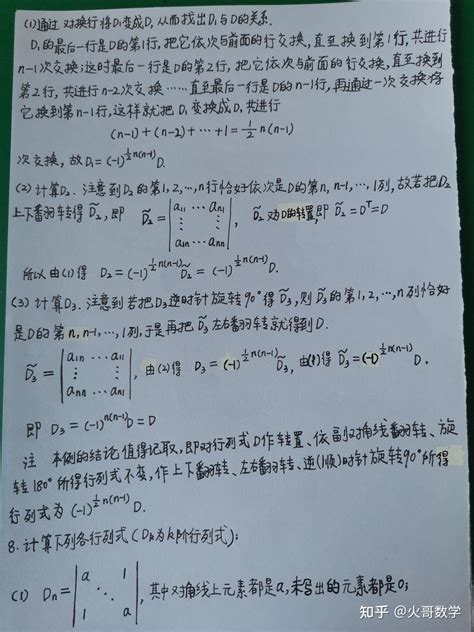 (1)通过对换行将D₁变成D,从而找出D₁与D的关系.
D₁的最后一行是D的第1行,把它依次与前面的行交换,直至换到第1行,共进行
n-1次交换;这时最后一行是D的第2行,把它依次与前面的行交换,直至换到
第2行,共进行n-2次交换……直至最后一行是D的n-1行,再通过一次交换将
它换到第n-1行,这样就把D₁变换成D,共进行
(n-1)+(n-2)+…+1=½n(n-1)
次交换,故D₁=(-1)^{½n(n-1)}D.
(2)计算D₂.注意到D₂的第1,2,…,n行恰好依次是D的第n,n-1,…,1列,故若把D₂
上下翻转得D̃₂,即 D̃₂=|a₁₁ … aₙ₁; ⋮ ⋮; a₁ₙ … aₙₙ|, D̃₂为D的转置,即D̃₂=Dᵀ=D
所以由(1)得 D₂=(-1)^{½n(n-1)}D̃₂=(-1)^{½n(n-1)}D.
(3)计算D₃.注意到若把D₃逆时针旋转90°得D̃₃,则D̃₃的第1,2,…,n列恰好
是D的第n,n-1,…,1列,于是再把D̃₃左右翻转就得到D.
D̃₃=|a₁ₙ … a₁₁; ⋮ ⋮; aₙₙ … aₙ₁|,由(2)得 D₃=(-1)^{½n(n-1)}D̃₃,由(1)得D̃₃=(-1)^{½n(n-1)}D,
即 D₃=(-1)^{n(n-1)}D=D
注 本例的结论值得记取,即对行列式D作转置、依副对角线翻转、旋
转180°所得行列式不变,作上下翻转、左右翻转、逆(顺)时针旋转90°所得
行列式为(-1)^{½n(n-1)}D.
8.计算下列各行列式(Dₖ为k阶行列式):
(1) Dₙ=|a 1; ⋱; 1 a|,其中对角线上元素都是a,未写出的元素都是0;
知乎 @火哥数学